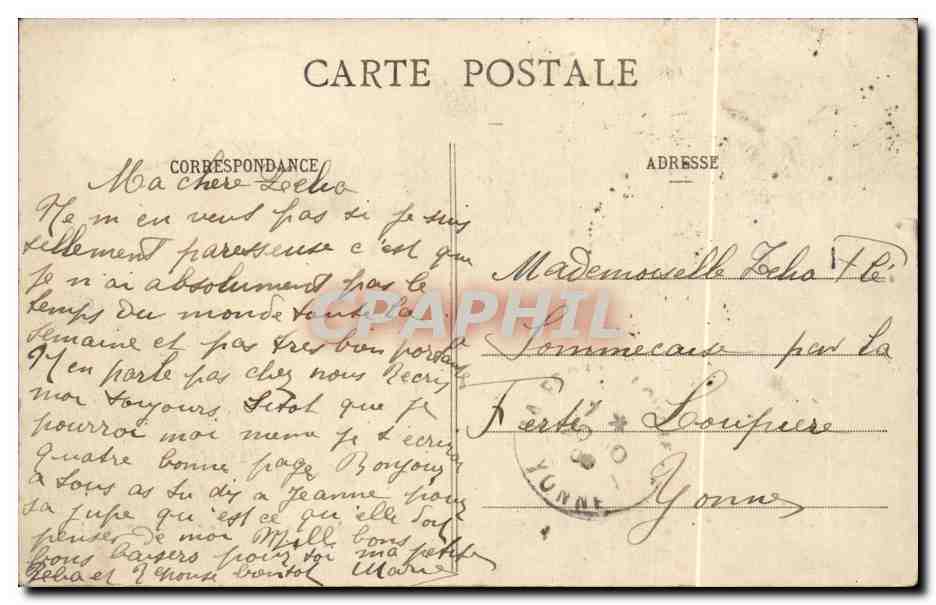 CARTE POSTALE
CORRESPONDANCE
Ma chère Zelia
Ne m en veut pas si je suis
tellement paresseuse c'est que
je n ai absolument pas le
temps du monde toute la
semaine et pas tres bien portante
N en parle pas chez nous Recris
moi toujours Sitot que je
pourrai moi meme je t ecrirai
quatre bonne page Bonjour
a tous as tu dis a Jeanne pour
sa jupe qu'est ce qu'elle doit
penser de moi Mille bons
bons baisers pour toi ma petite
Zelia et Reponse bientot Marie
ADRESSE
Mademoiselle Zelia
Sommecaise par la
Ferté Loupiere
Yonne
YONNE
CPAPHIL